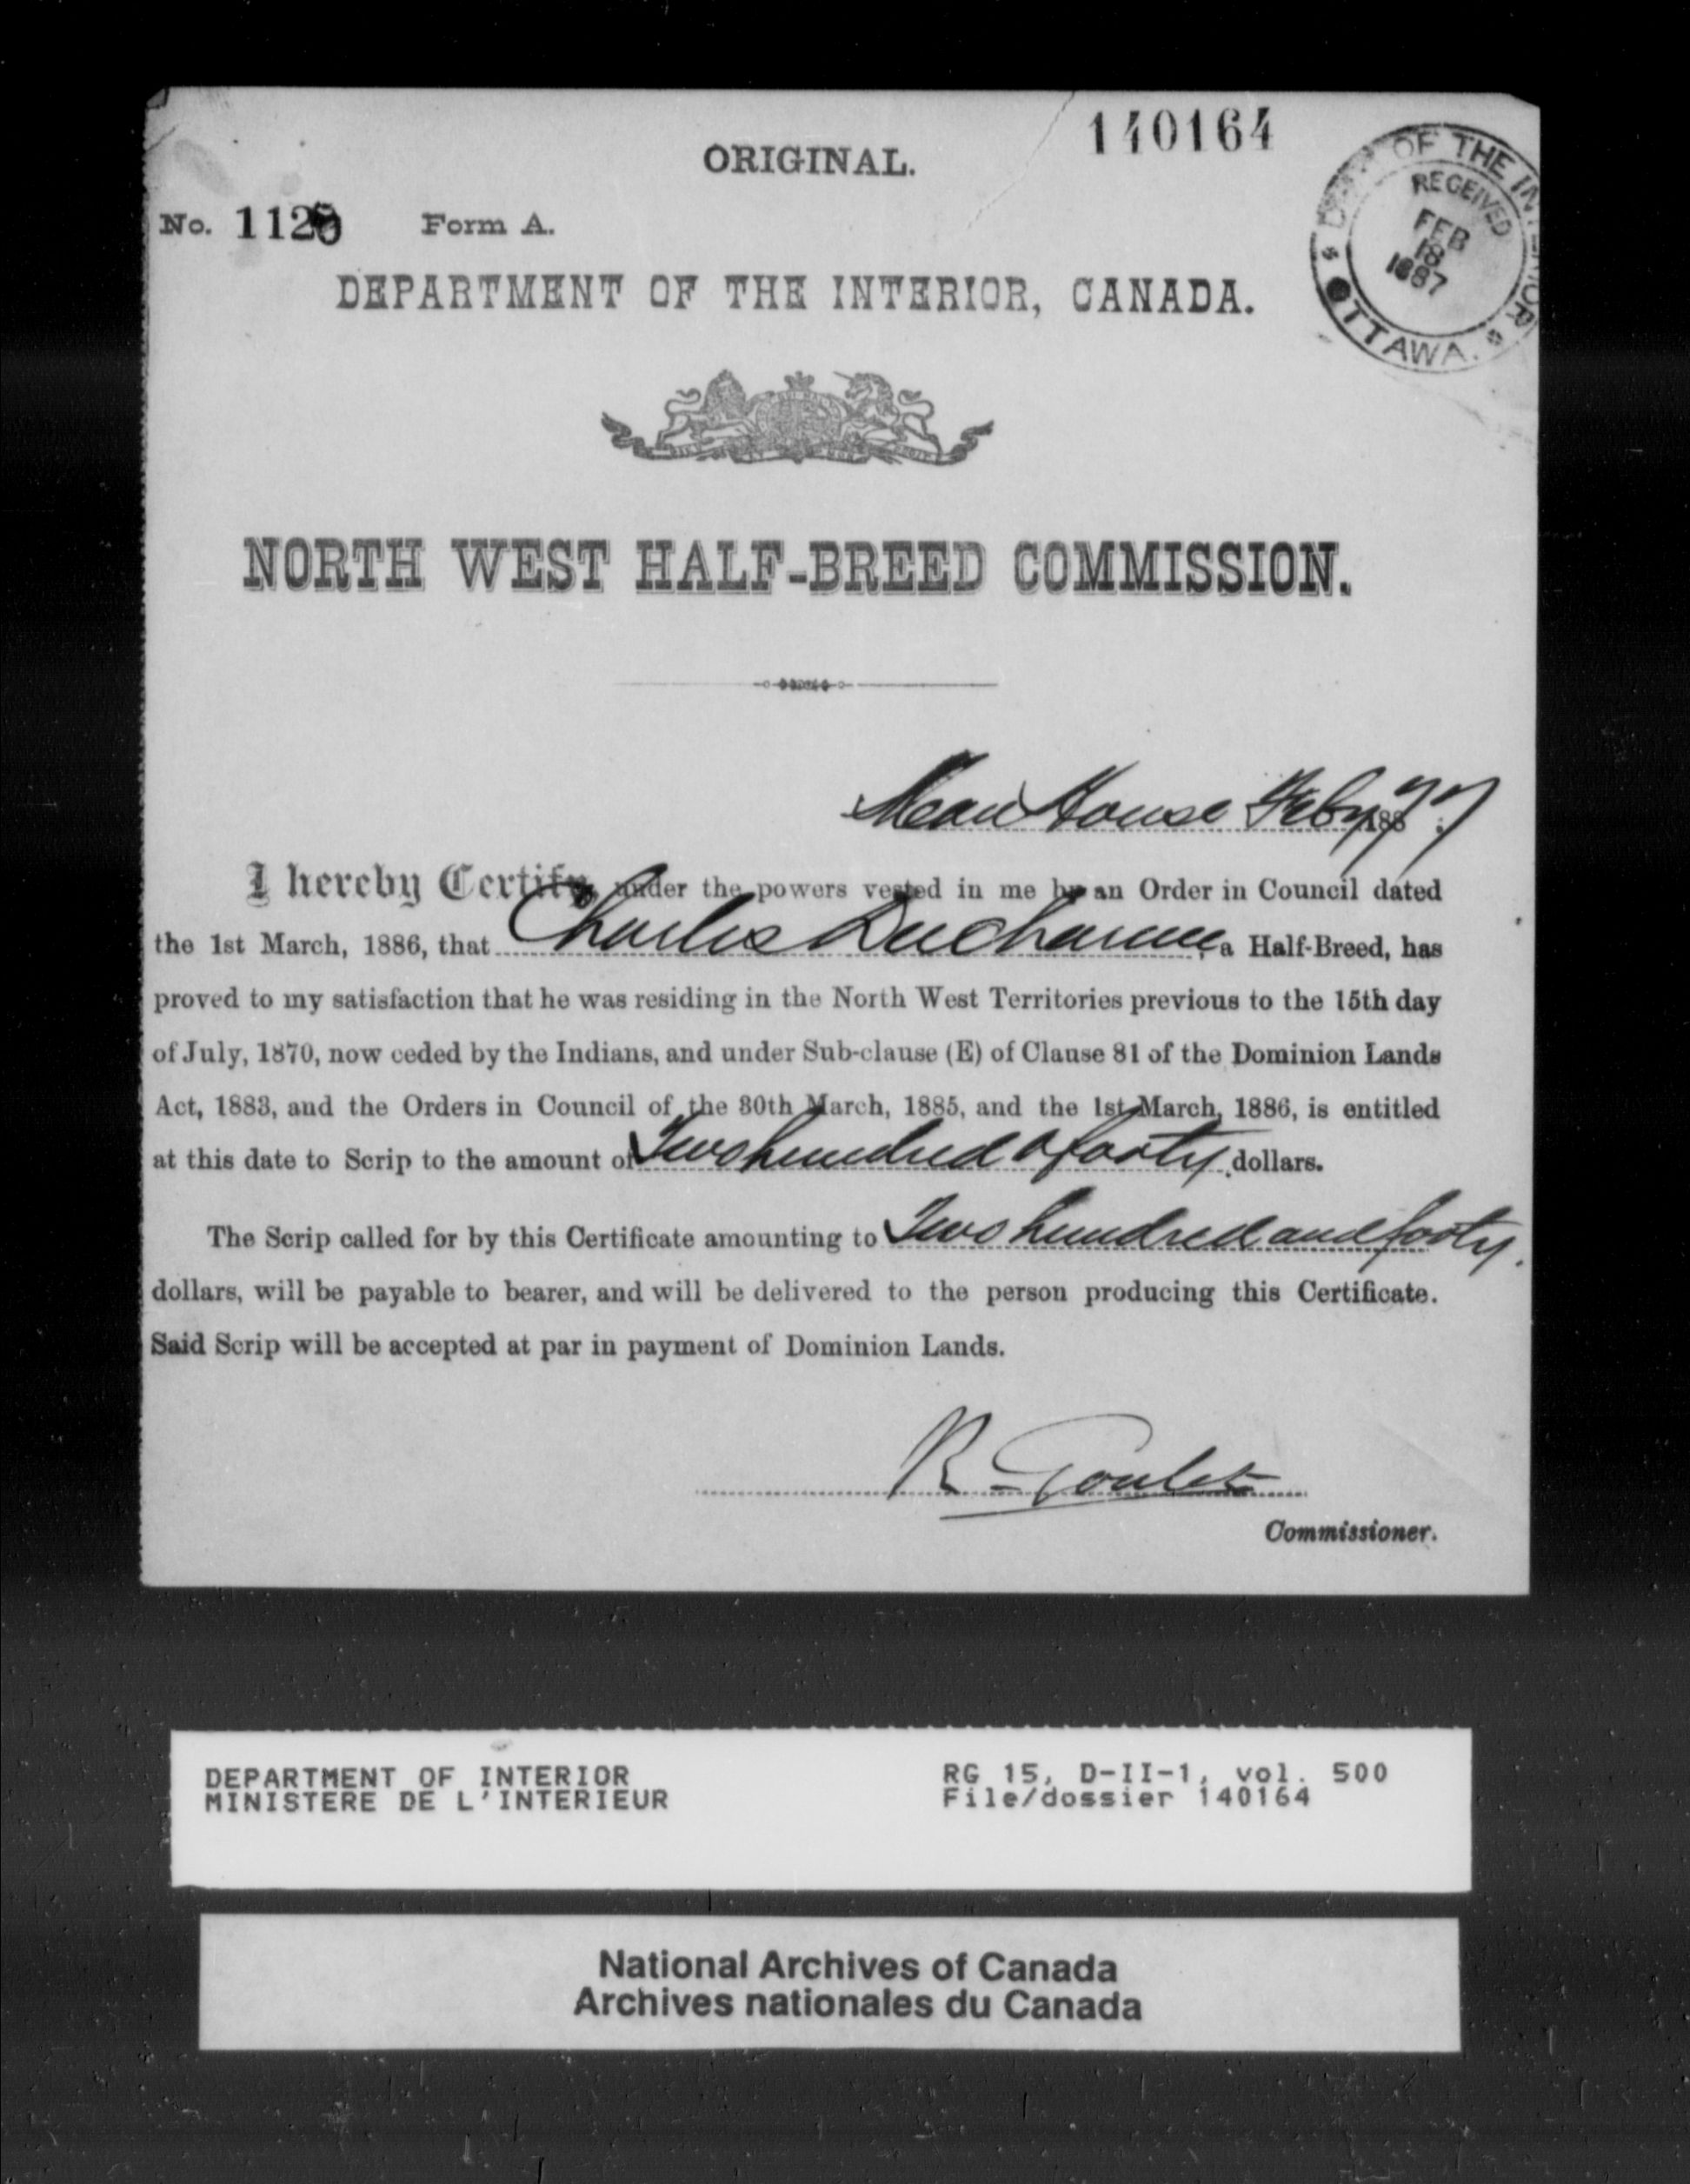 140164
ORIGINAL.
DEPT OF THE INTERIOR
RECEIVED
FEB
18
1887
OTTAWA.
No. 112 Form A.
DEPARTMENT OF THE INTERIOR, CANADA.
NORTH WEST HALF-BREED COMMISSION.
House Feby 7 1887
I hereby Certify, under the powers vested in me by an Order in Council dated
the 1st March, 1886, that Charles Ducharme, a Half-Breed, has
proved to my satisfaction that he was residing in the North West Territories previous to the 15th day
of July, 1870, now ceded by the Indians, and under Sub-clause (E) of Clause 81 of the Dominion Lands
Act, 1883, and the Orders in Council of the 30th March, 1885, and the 1st March, 1886, is entitled
at this date to Scrip to the amount of Two hundred & forty dollars.
The Scrip called for by this Certificate amounting to Two hundred and forty
dollars, will be payable to bearer, and will be delivered to the person producing this Certificate.
Said Scrip will be accepted at par in payment of Dominion Lands.
R. Goulet
Commissioner.
DEPARTMENT OF INTERIOR RG 15, D-II-1, vol. 500
MINISTERE DE L'INTERIEUR File/dossier 140164
National Archives of Canada
Archives nationales du Canada